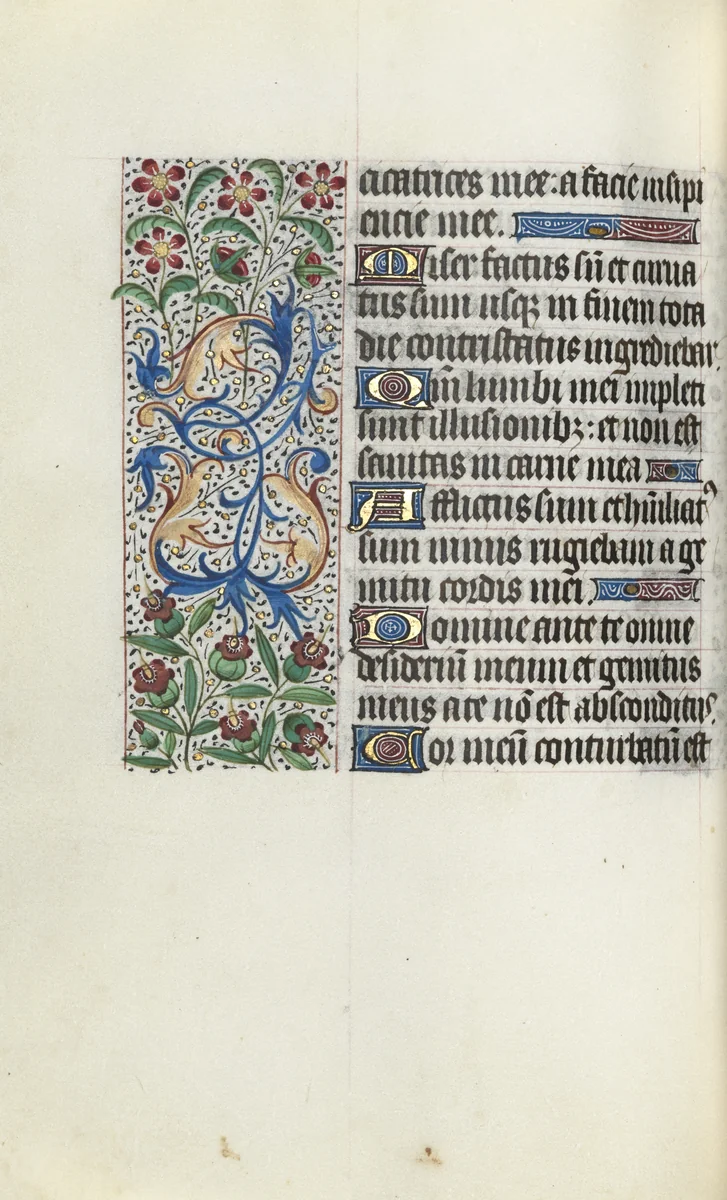 cicatrices mee: a facie insipi
encie mee.
Miser factus sū et curua
tus sum usqꝫ in finem tota
die contristatus ingrediebar.
Qm̄ lumbi mei impleti
sunt illusionibꝫ: et non est
sanitas in carne mea
Afflictus sum et hūiliatꝰ
sum nimis rugiebam a ge
mitu cordis mei.
Domine ante te omne
desideriū meum et gemitus
meus a te nō est absconditus.
Cor meū conturbatū est